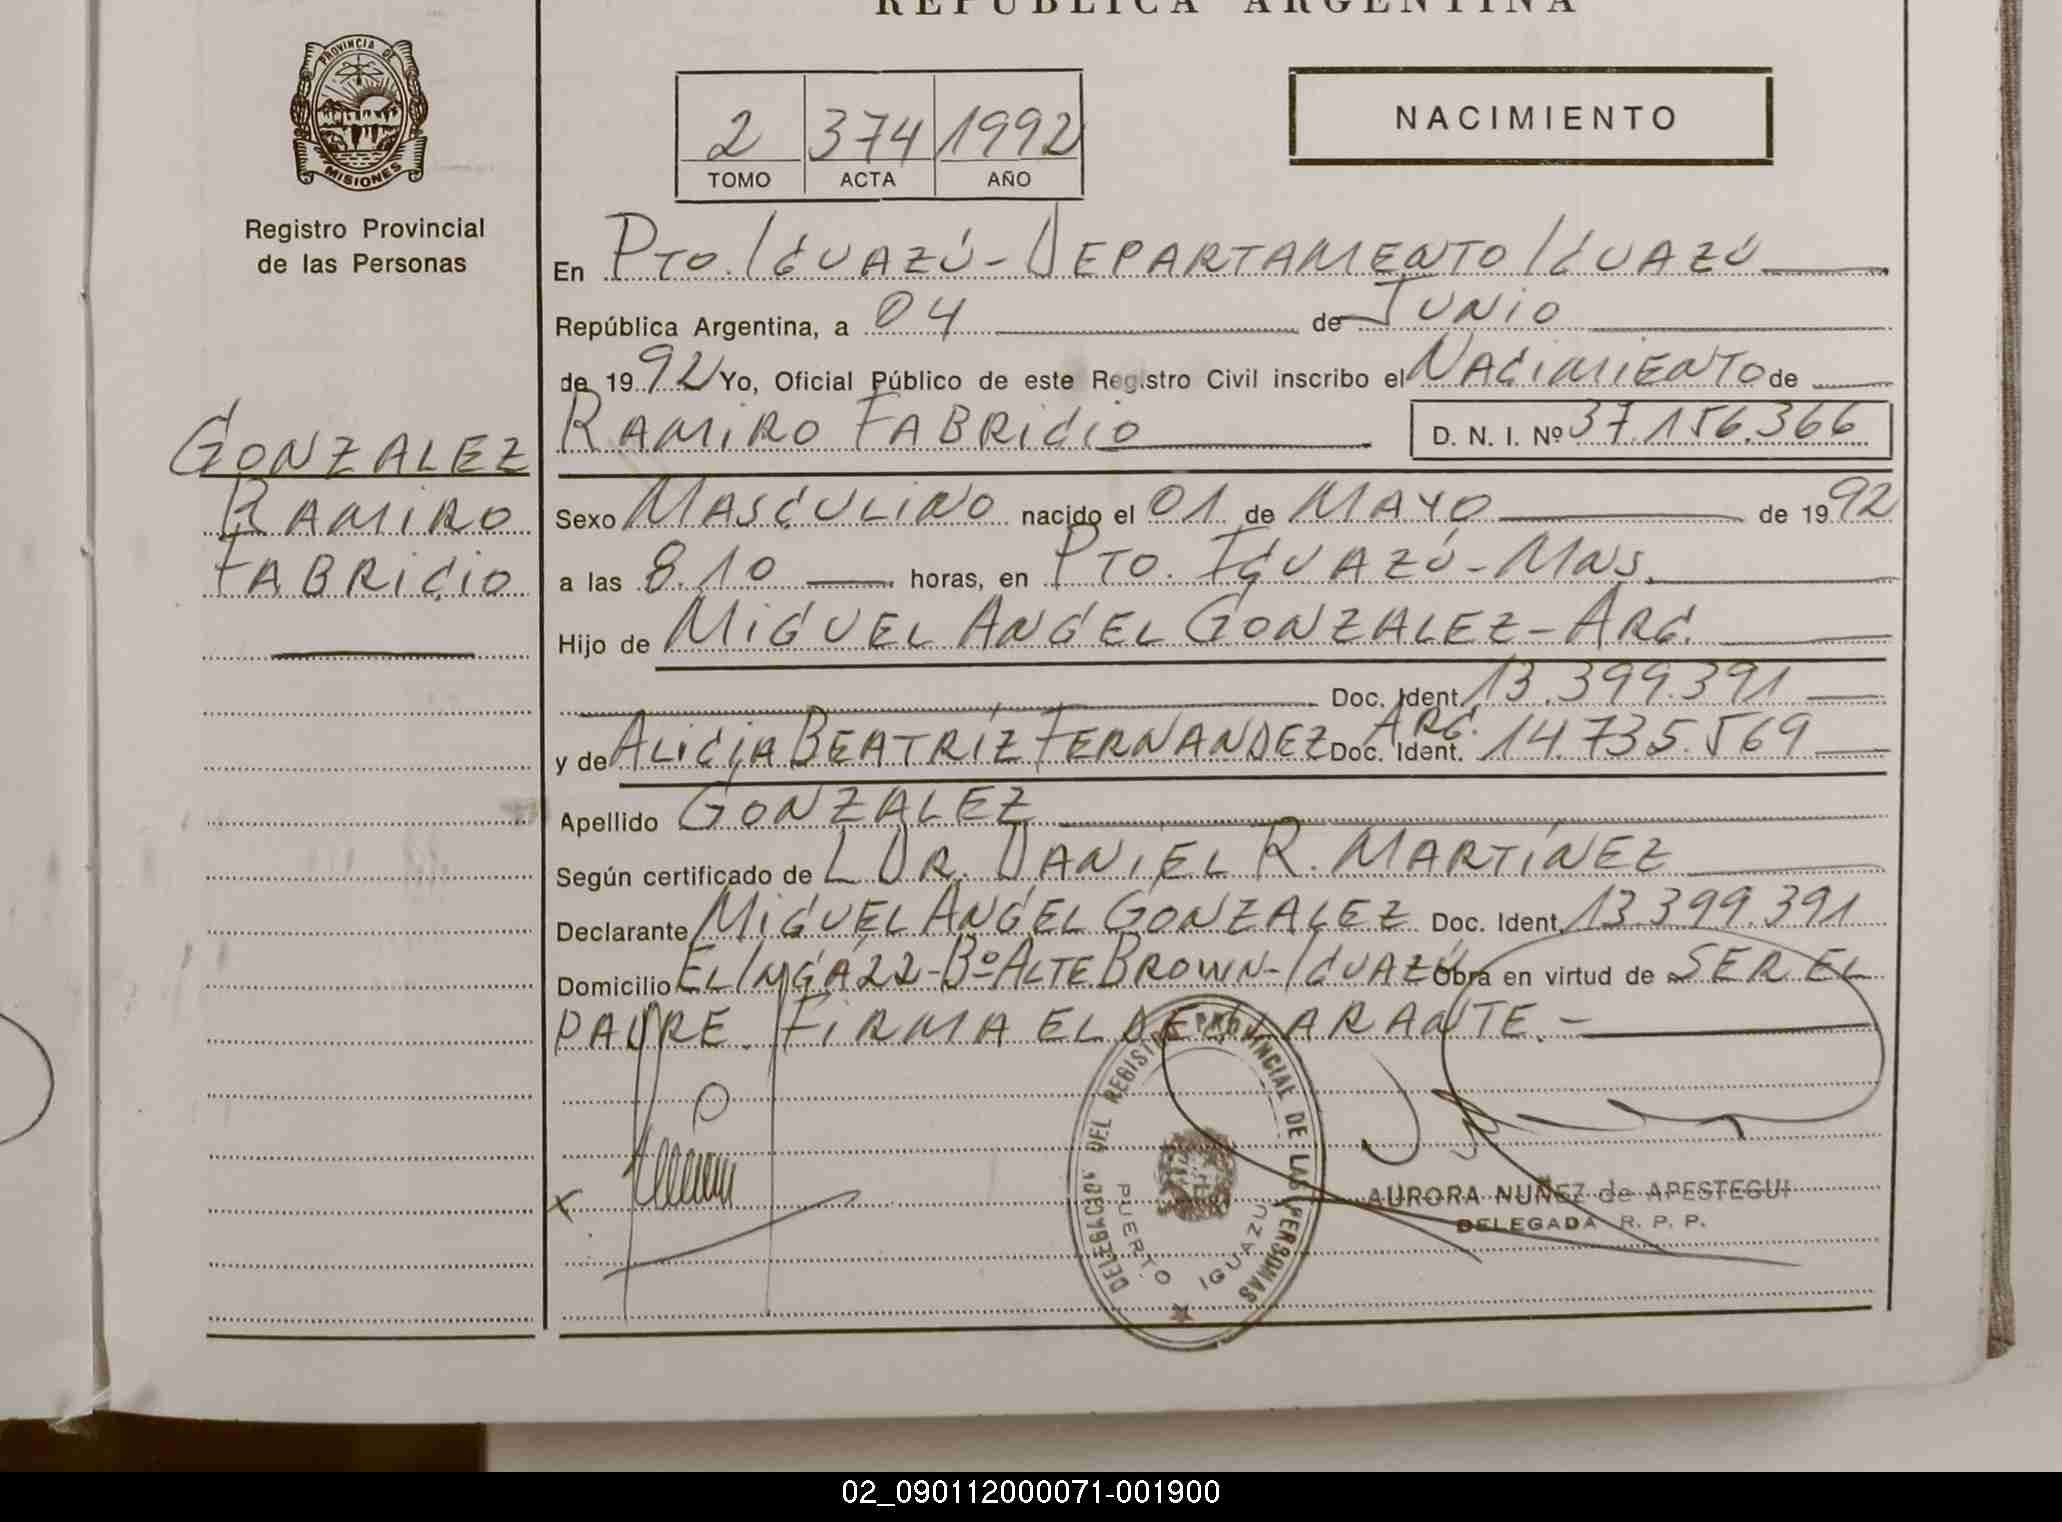 REPUBLICA ARGENTINA
PROVINCIA DE
MISIONES
Registro Provincial
de las Personas
2 374 1992
TOMO ACTA AÑO
NACIMIENTO
En PTO. IGUAZÚ - DEPARTAMENTO IGUAZÚ
República Argentina, a 04 de JUNIO
de 1992 Yo, Oficial Público de este Registro Civil inscribo el NACIMIENTO de
RAMIRO FABRICIO D. N. I. Nº 37.156.366
GONZALEZ
RAMIRO
FABRICIO
Sexo MASCULINO nacido el 01 de MAYO de 1992
a las 8.10 horas, en PTO. IGUAZÚ - MNS.
Hijo de MIGUEL ANGEL GONZALEZ - ARG.
Doc. Ident. 13.399.391
y de ALICIA BEATRÍZ FERNANDEZ ARG. Doc. Ident. 14.735.569
Apellido GONZALEZ
Según certificado de L DR. DANIEL R. MARTÍNEZ
Declarante MIGUEL ANGEL GONZALEZ Doc. Ident. 13.399.391
Domicilio EL INGÁ 22 - Bº ALTE BROWN - IGUAZÚ Obra en virtud de SER EL
PADRE. FIRMA EL DECLARANTE. -
X
DELEGACION DEL REGISTRO PROVINCIAL DE LAS PERSONAS
PUERTO IGUAZU
AURORA NUÑEZ de APESTEGUI
DELEGADA R. P. P.
02_090112000071-001900